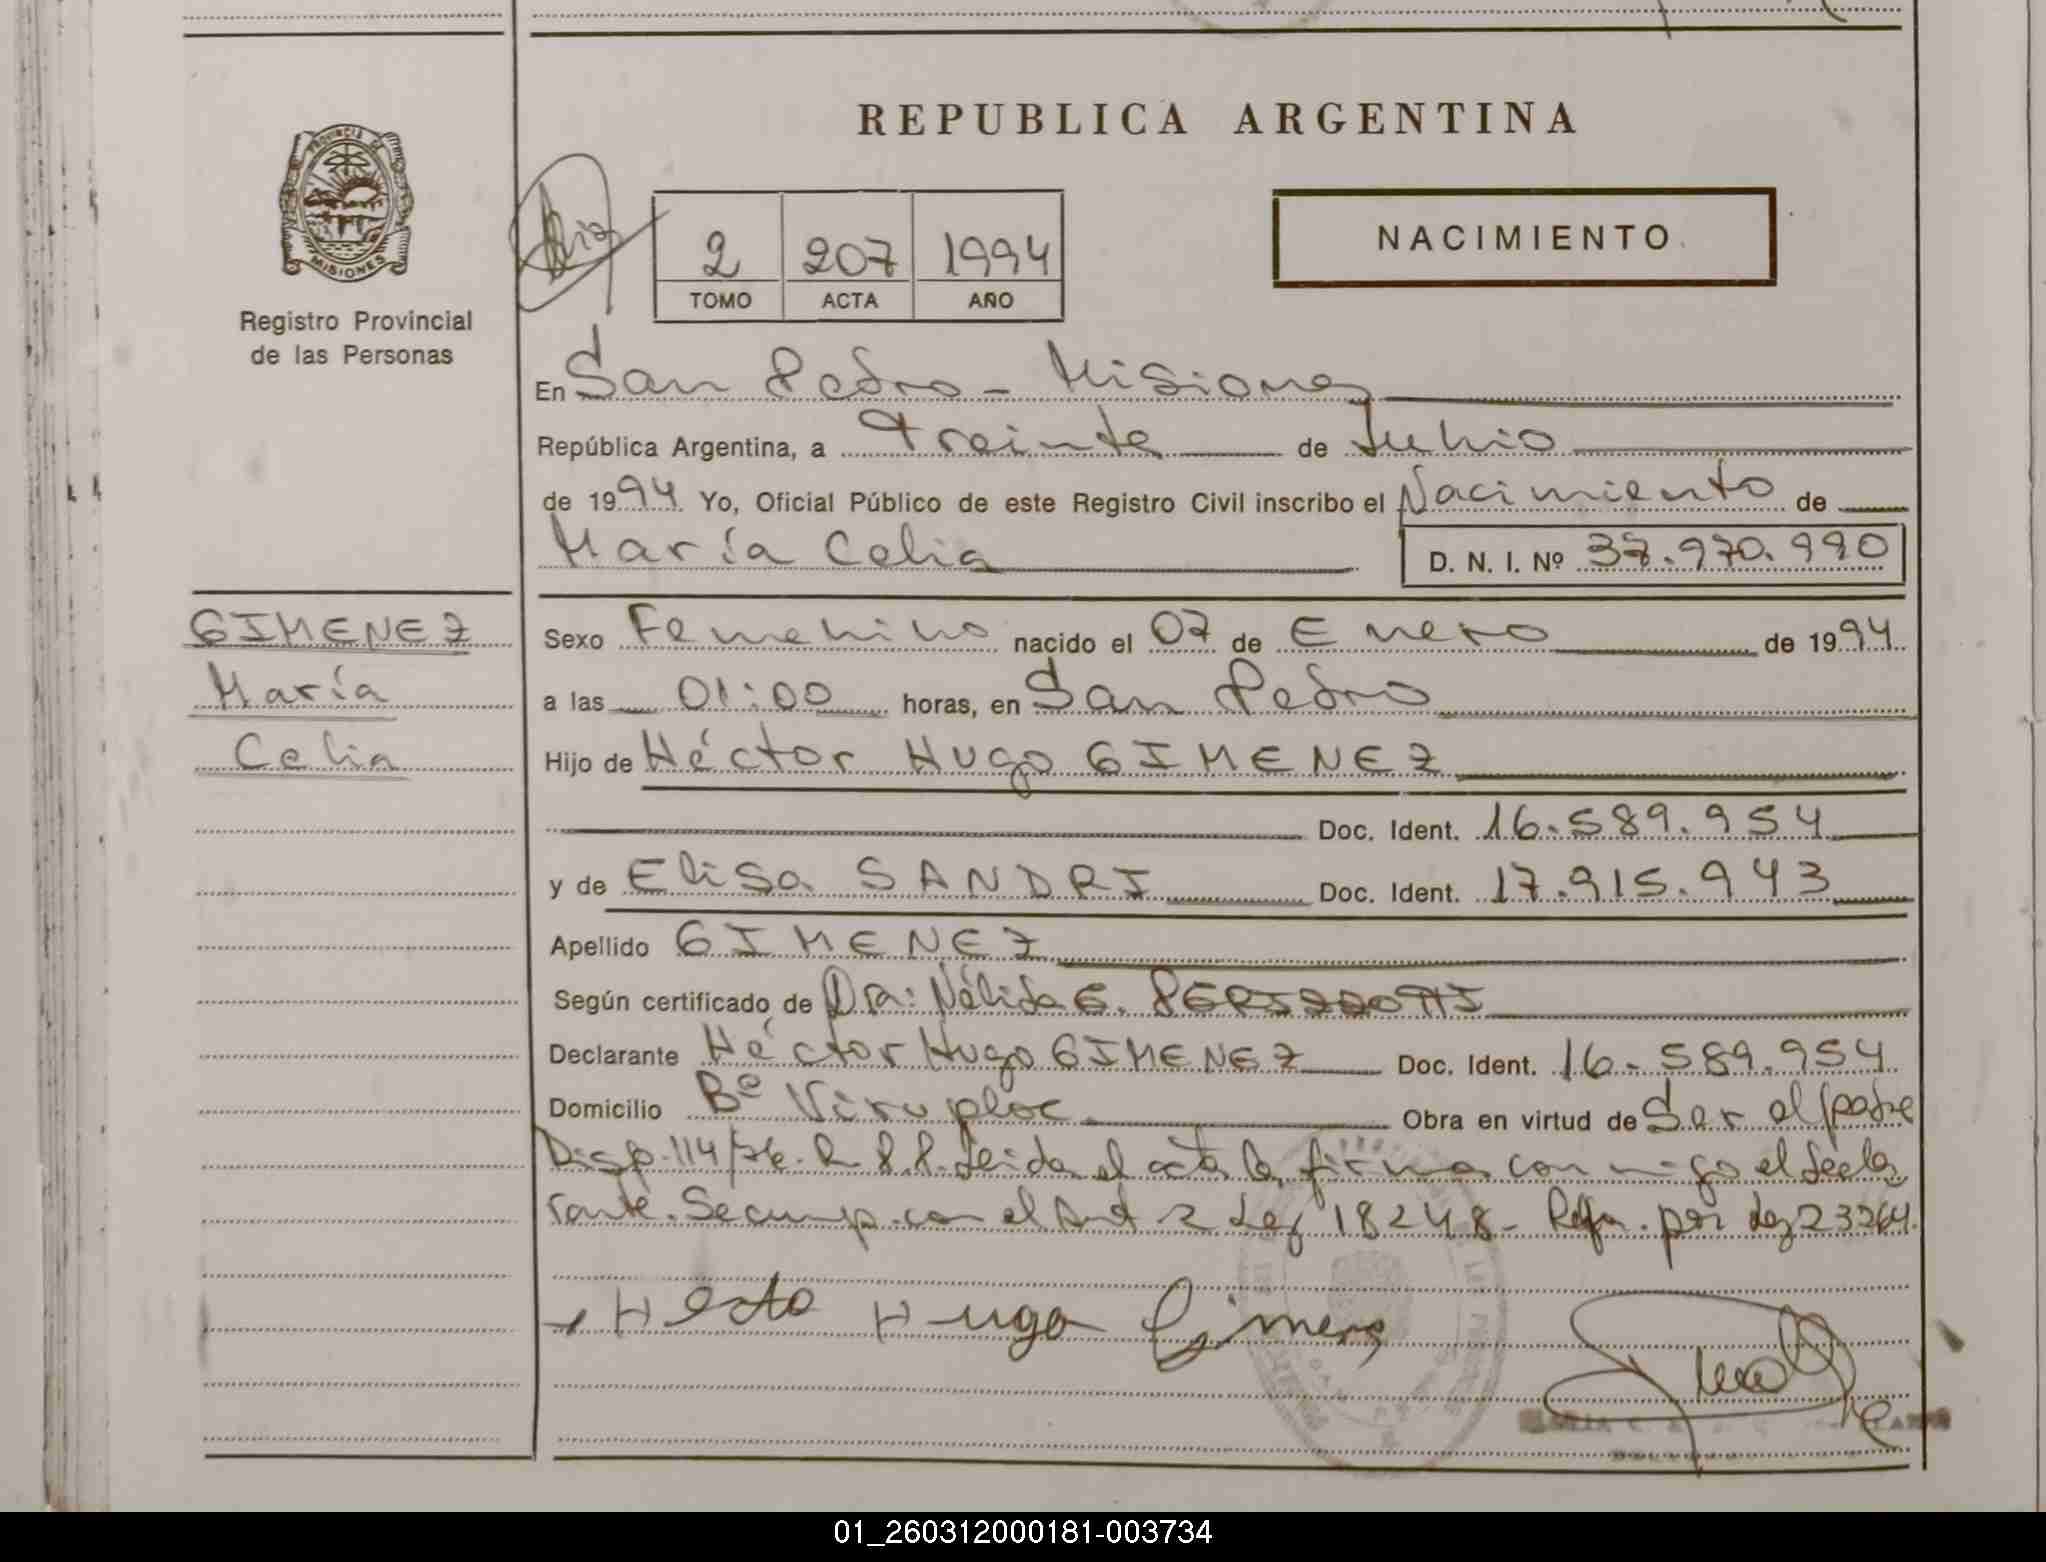 REPUBLICA ARGENTINA
PROVINCIA DE
MISIONES
Registro Provincial
de las Personas
2 207 1994
TOMO ACTA AÑO
NACIMIENTO
En San Pedro - Misiones
República Argentina, a Treinta de Junio
de 1994 Yo, Oficial Público de este Registro Civil inscribo el Nacimiento de
María Celia D. N. I. Nº 37.970.990
GIMENEZ
María
Celia
Sexo Femenino nacido el 07 de Enero de 1994
a las 01:00 horas, en San Pedro
Hijo de Héctor Hugo GIMENEZ
Doc. Ident. 16.589.954
y de Elisa SANDRI Doc. Ident. 17.915.943
Apellido GIMENEZ
Según certificado de Dra: Nélida E.
Declarante Héctor Hugo GIMENEZ Doc. Ident. 16.589.954
Domicilio Bº Obra en virtud de Ser el padre
Disp. 114/76. R.P.P. Leida el acta la firma conmigo el decla
rante. Se cump. con el Art 2 Ley 18248- Refor. por Ley 23264.
Hecto Hugo Gimenez
01_260312000181-003734